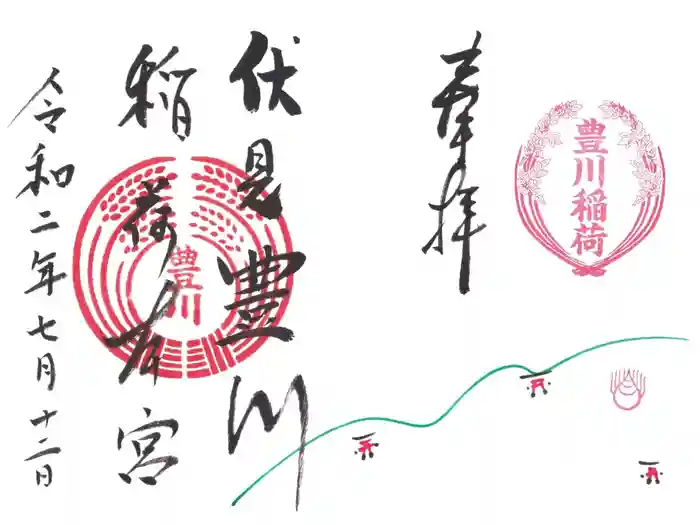 豊川稲荷
奉拝
伏見豊川
稲荷右宮
豊川
令和二年七月十二日